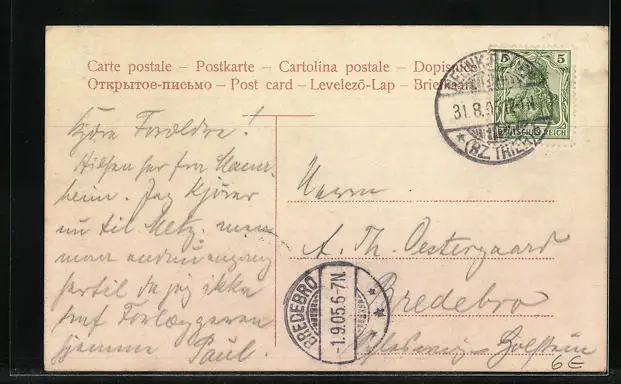 Carte postale – Postkarte – Cartolina postale – Dopisnice
Открытое-письмо – Post card – Levelezö-Lap – Briefkaart
5
DEUTSCHES REICH
31.8.05
(BZ. TRIER)
Kjære Forældre!
Hilsen her fra Mann-
heim. Jeg kjører
nu til Metz. men
maa endnu engang
hertil da jeg ikke
traf Forlæggeren
hjemme Paul.
Herrn
A. Th. Oestergaard
Bredebro
Schleswig-Holstein
BREDEBRO
1.9.05.6-7N.
6€